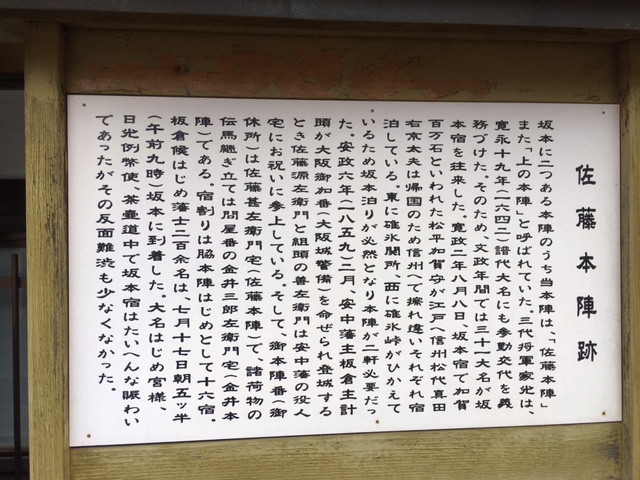 佐藤本陣跡
坂本に二つある本陣のうち当本陣は、「佐藤本陣」
また「上の本陣」と呼ばれていた。三代将軍家光は、
寛永十九年(一六四二)譜代大名にも参勤交代を義
務づけた。そのため、文政年間では三十一大名が坂
本宿を往来した。寛政二年八月八日、坂本宿で加賀
百万石といわれた松平加賀守が江戸へ信州松代真田
右京太夫は帰国のため信州へて擦れ違いそれぞれ宿
泊している。東に碓氷関所、西に碓氷峠がひかえて
いるため坂本泊りが必然となり本陣が二軒必要だっ
た。安政六年(一八五九)二月、安中藩主板倉主計
頭が大阪御加番(大阪城警備)を命ぜられ登城する
とき佐藤源左衛門と組頭の善左衛門は安中藩の役人
宅にお祝いに参上している。そして、御本陣番(御
休所)は佐藤甚左衛門宅(佐藤本陣)で、諸荷物の
伝馬継ぎ立ては問屋番の金井三郎左衛門宅(金井本
陣)である。宿割りは脇本陣はじめとして十六宿。
板倉候はじめ藩士二百余名は、七月十七日朝五ッ半
(午前九時)坂本に到着した。大名はじめ宮様、
日光例幣使、茶壷道中で坂本宿はたいへんな賑わい
であったがその反面難渋も少なくなかった。